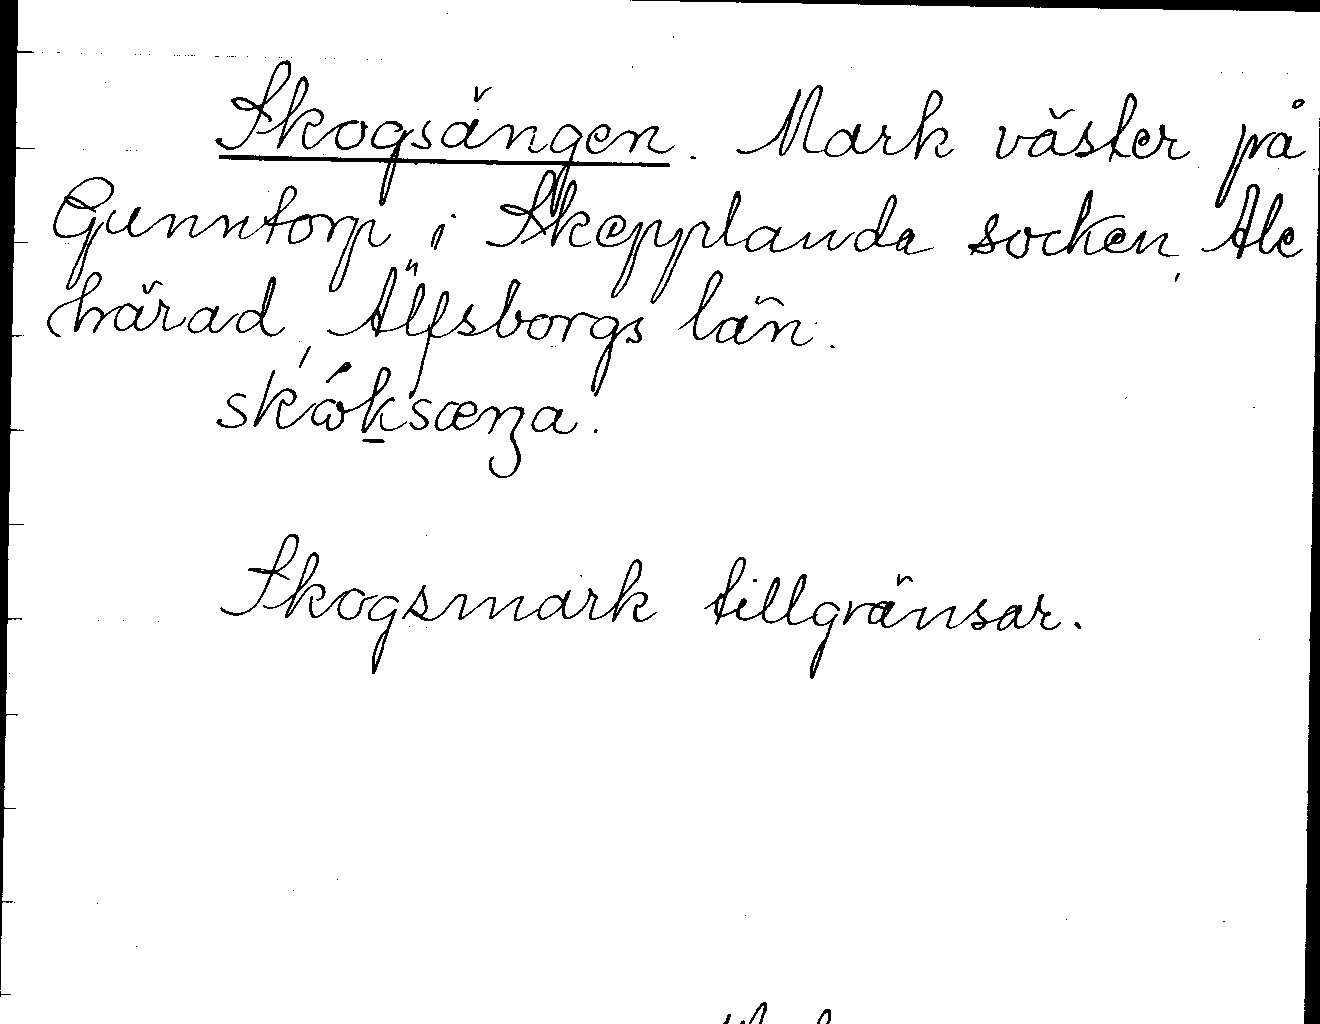 Skogsängen. Mark väster på
Gunntorp i Skepplanda socken, Ale
härad, Älfsborgs län.
skɷ́ksæŋa.
Skogsmark tillgränsar.